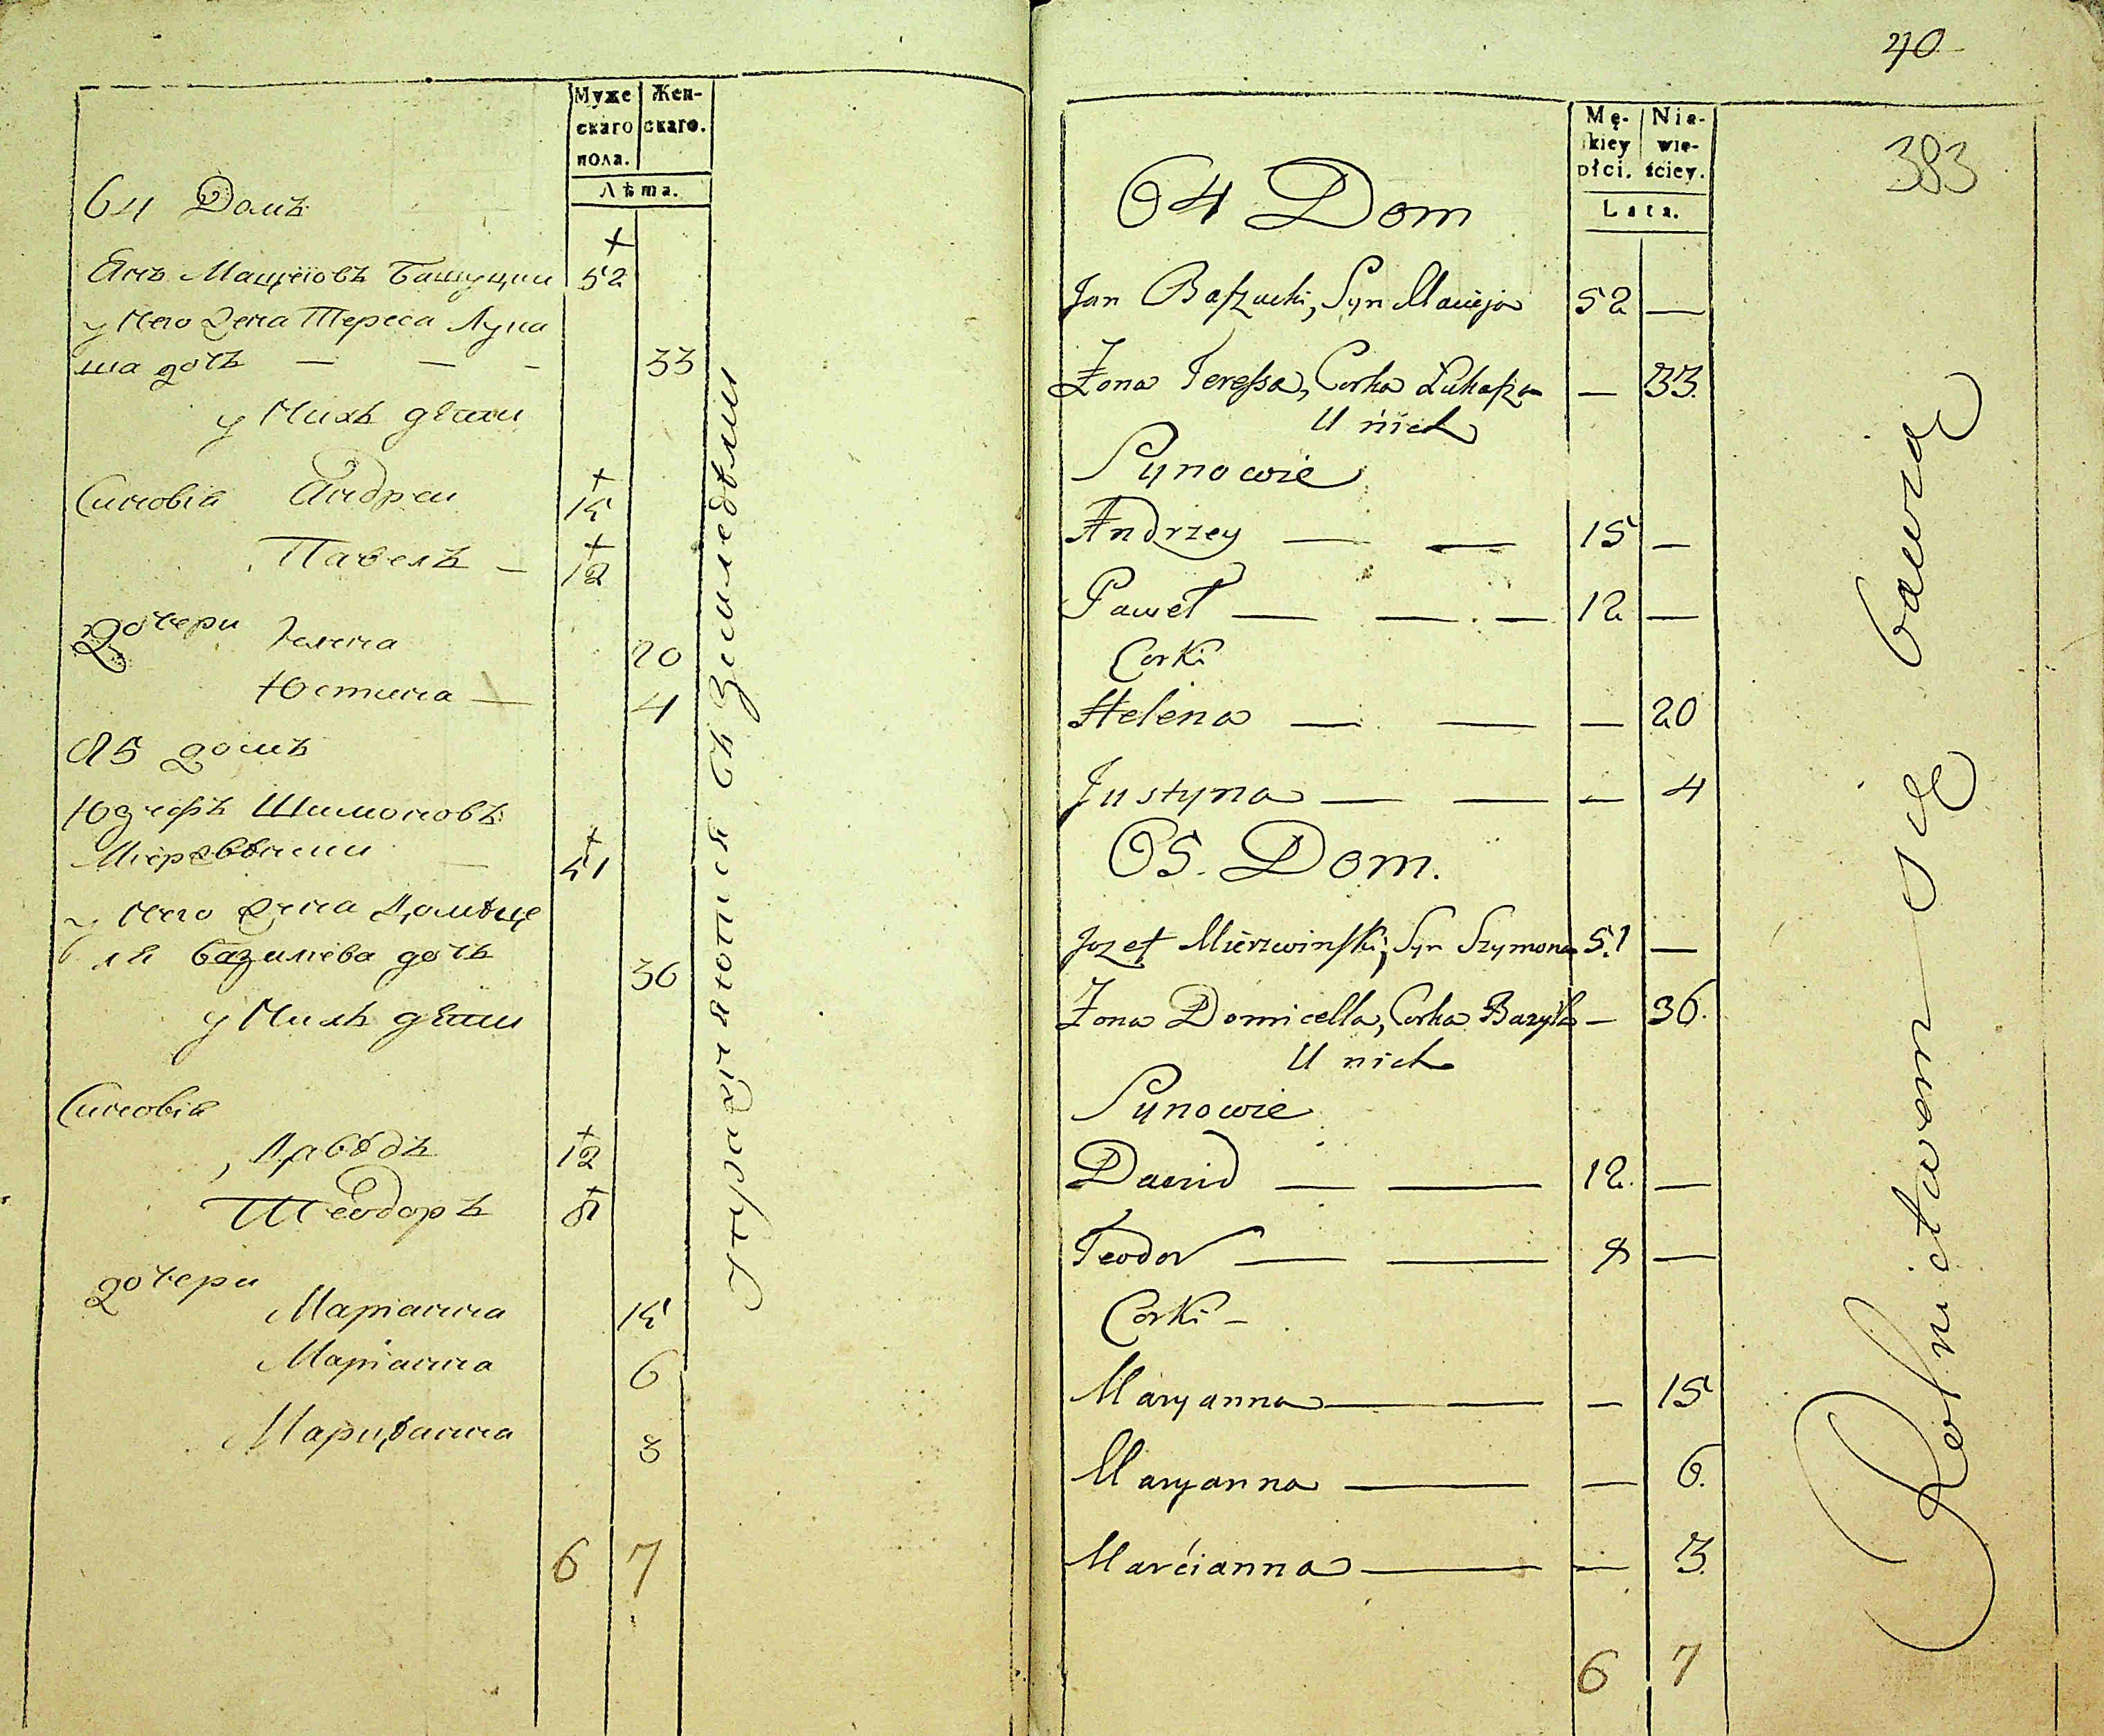 Муже Жен-
скаго скаго.
пола.
Лѣта.
64 Домъ
Янъ Мацѣіовъ Башуцки 52
у Него Жена Тереса Лука
ша дочъ — — - 33
у Нихъ дѣти
Синовія Андреи 15
Павелъ — 12
Дочери Гелена 20
Юстина — 4
65 домъ
Юзефъ Шимоновъ
Мієрзвѣнски 51
у Него Жена Домѣце
ля Базилева дочъ 36
у Нихъ дѣти
Синовія
Давѣдъ 12
Теодоръ 8
дочери
Маріанна 15
Маріанна 6
Марціанна 3
6 7
упражняются въ Земледѣлии
40
383
Mę- Nie-
kiey wie-
płci. ściey.
Lata.
64 Dom
Jan Baſzucki, Syn Macieja 52 —
Żona Tereſsa, Corka Łukaſza — 33.
U nich
Synowie
Andrzey — — 15 —
Paweł — — — 12 —
Corki
Helena — — — 20
Justyna — — — 4
65. Dom.
Jozef Mierzwinſki, Syn Szymona 51 —
Żona Domicella, Corka Bazyla — 36.
U nich
Synowie
Dawid — — 12. —
Teodor — — 8 —
Corki —
Maryanna — — — 15
Maryanna — — 6.
Marcianna — — 3.
6 7
Rolnictwem się bawią